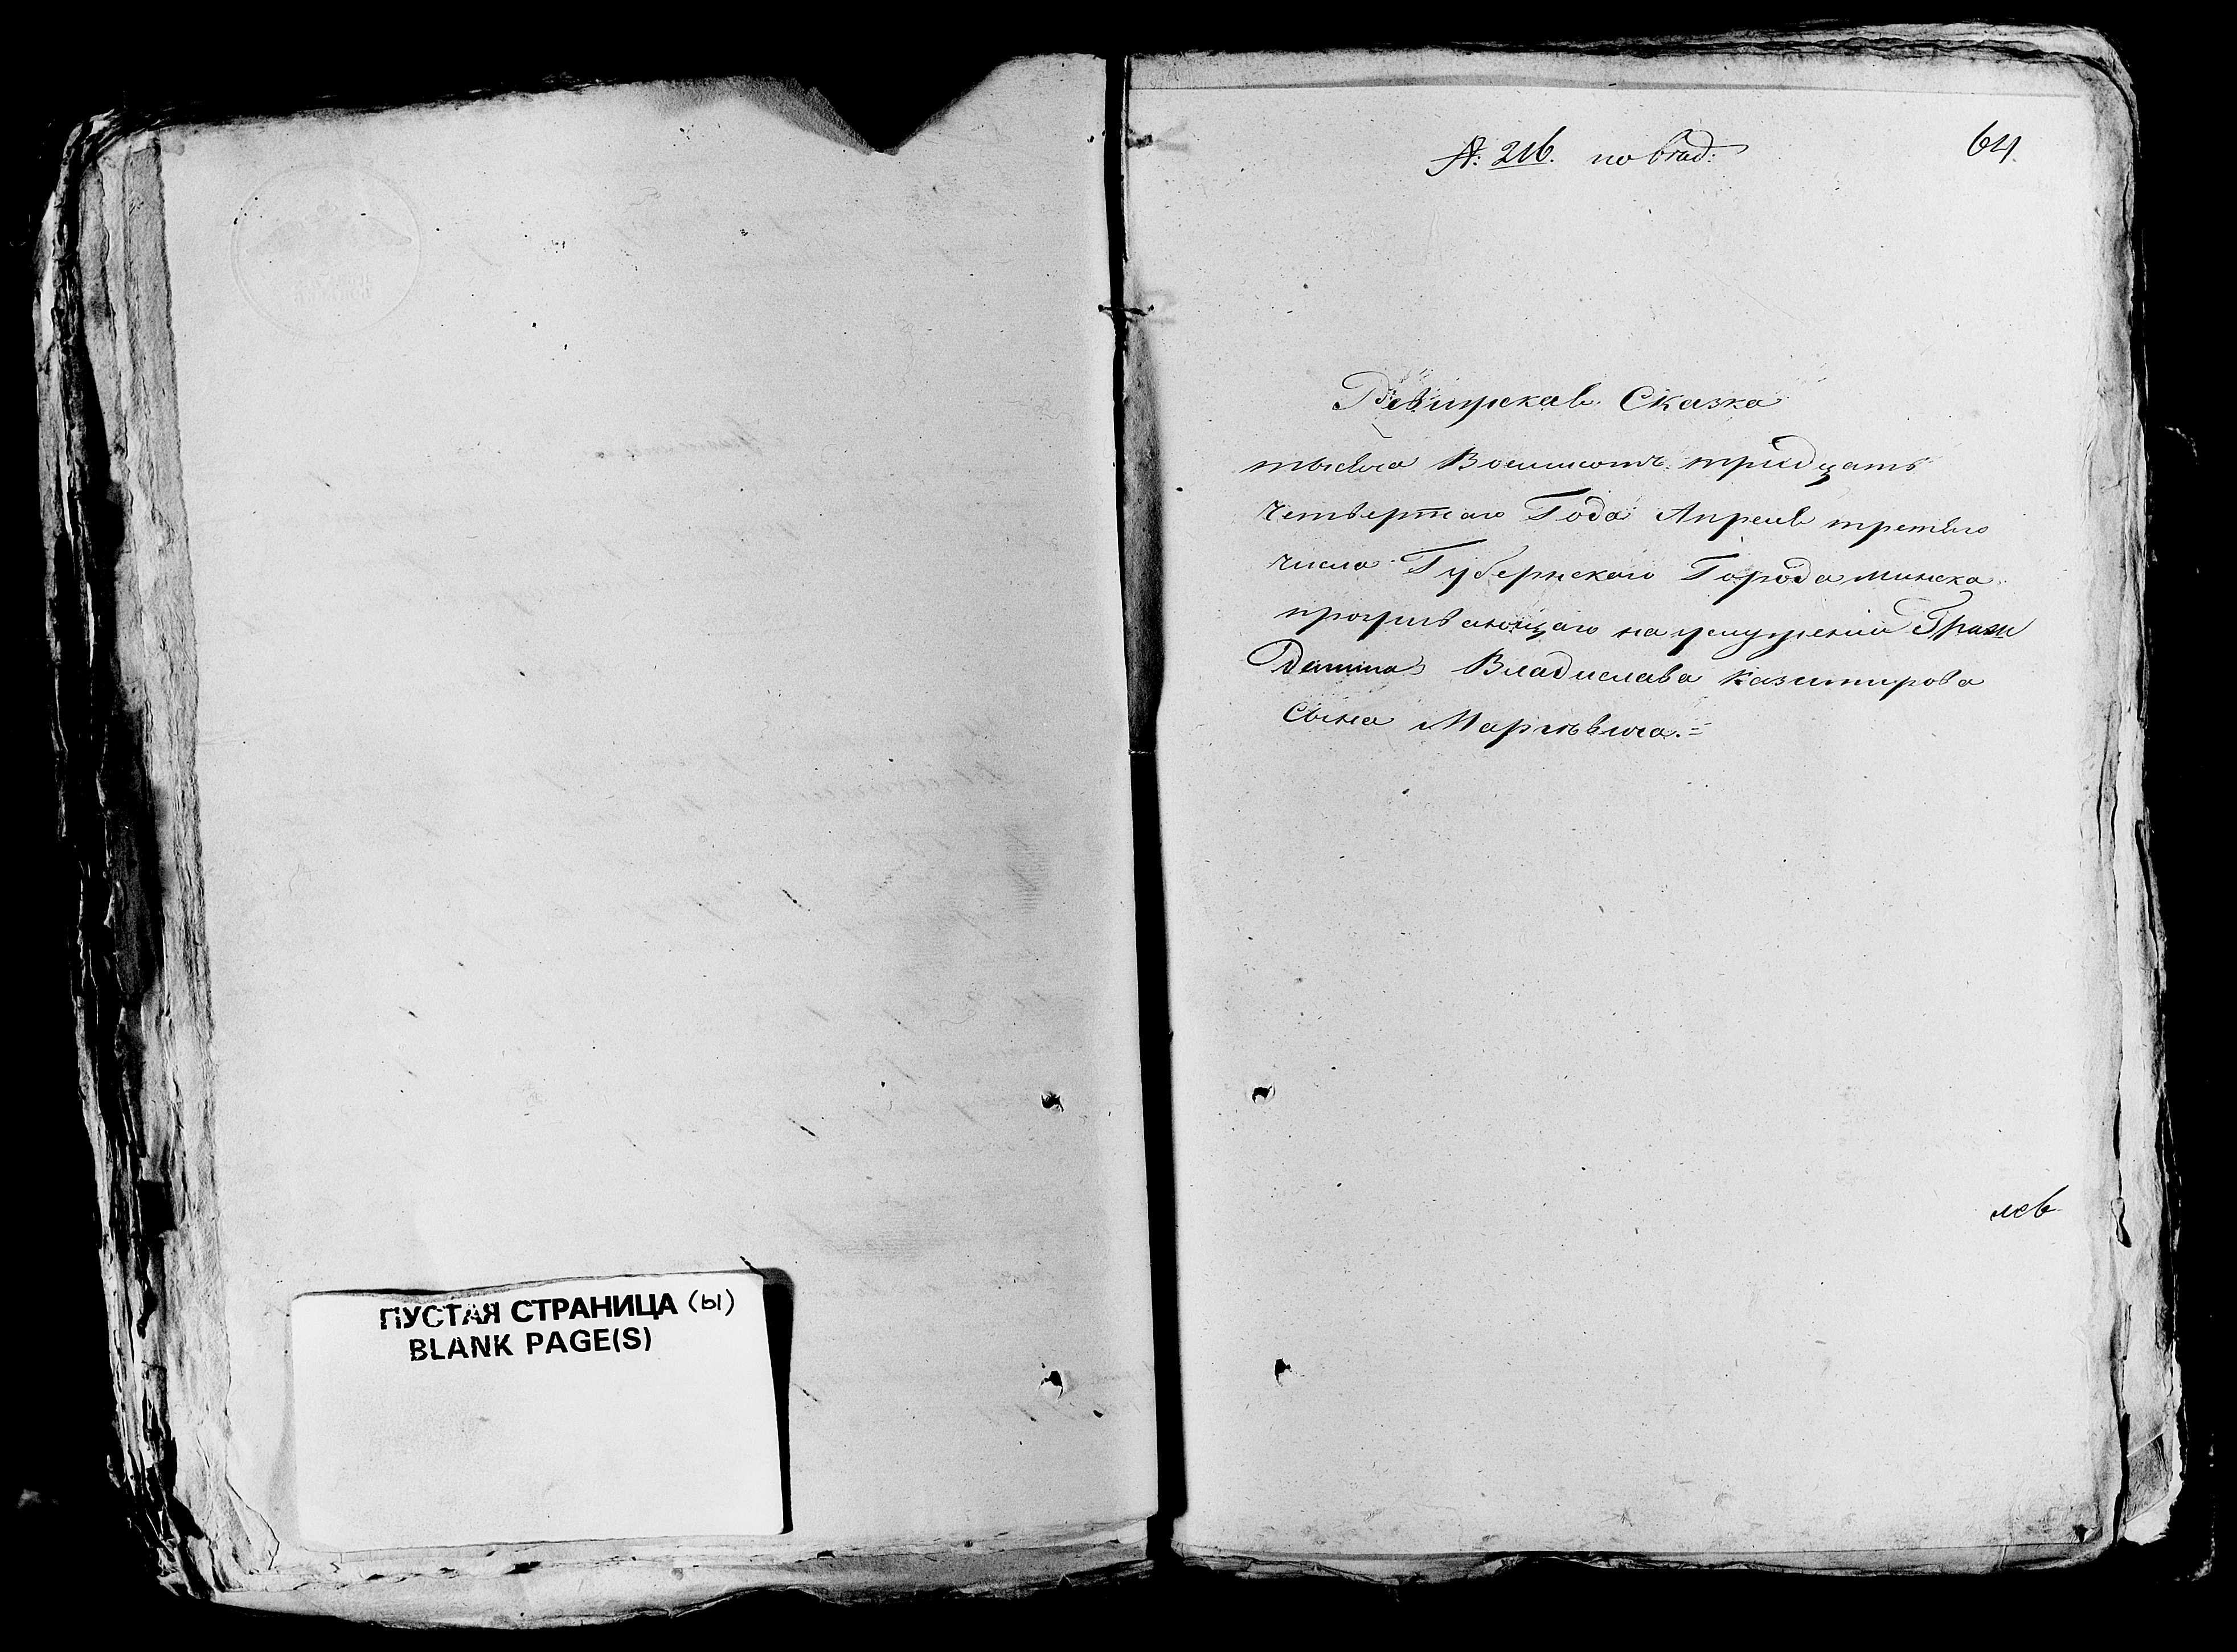 ПУСТАЯ СТРАНИЦА (ы)
BLANK PAGE(S)
№: 216. по
64.
Ревизская Сказка
тысяча Восемьсотъ тридцать
Четвертаго Года Апреля третьего
числа Губернскаго Города Минска
проживающаго на услужении Граж
данина Владислава Казимирова
Сына